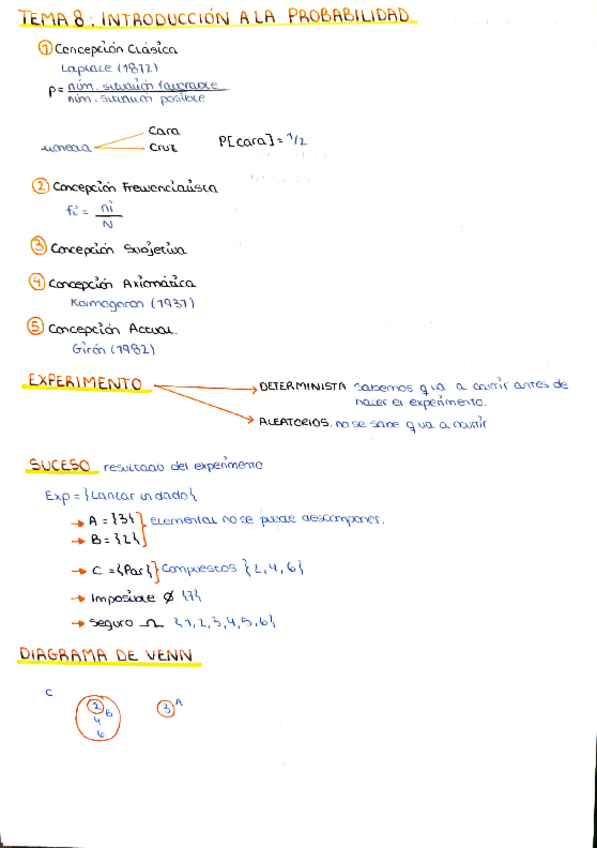 TEMA 8: INTRODUCCIÓN A LA PROBABILIDAD
① Concepción Clásica
Laplace (1812)
P= núm. situación favorable
núm. situación posible
moneda
Cara
Cruz
P[cara] = 1/2
② Concepción Frewencialista
fi = ni
N
③ Concepción Subjetiva
④ Concepción Axiomática
Kolmogoron (1937)
⑤ Concepción Actual.
Girón (1982)
EXPERIMENTO
DETERMINISTA sabemos q va a ocurrir antes de
hacer el experimento.
ALEATORIOS. no se sabe q va a ocurrir
SUCESO resultado del experimento
Exp = {Lanzar un dado}
→ A = {3} Elemental no se puede descomponer.
→ B = {2}
→ C = {Par} Compuestos {2, 4, 6}
→ Imposible ∅ {7}
→ Seguro Ω {1, 2, 3, 4, 5, 6}
DIAGRAMA DE VENN
C
2 B
4
6
3 A